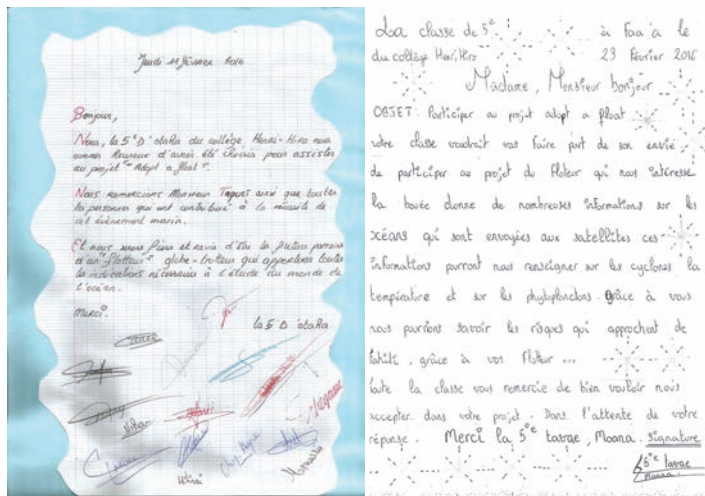 Jeudi 11 février 2016
Bonjour,
Nous, la 5°D'otaha du collège Henri-Hiro nous
sommes heureux d'avoir été choisis pour assister
au projet "Adopt a float".
Nous remercions Monsieur Taquet ainsi que toutes
les personnes qui ont contribué à la réussite de
cet évènement marin.
Et nous serons fiers et ravis d'être les futurs parrains
d'un "flotteur" globe-trotteur qui apportera toutes
les indications nécessaires à l'étude du monde de
l'océan.
Merci.
la 5°D'otaha
La classe de 5e à Faa'a le
du collège Henri Hiro 23 février 2016
Madame, Monsieur bonjour
OBJET: Participer au projet adopt a float
votre classe voudrait vous faire part de son envie
de participer au projet du floteur qui nous intéresse
la bouée donne de nombreuses informations sur les
océans qui sont envoyées aux satellites ces
informations pourront nous renseigner sur les cyclones la
température et sur les phytoplanctons. Grâce à vous
nous pourrions savoir les risques qui approchent de
tahiti, grâce à vos floteur ...
toute la classe vous remercie de bien vouloir nous
accepter dans votre projet. Dans l'attente de votre
réponse. Merci la 5e tavae, Moana. signature
5e tavae
moana